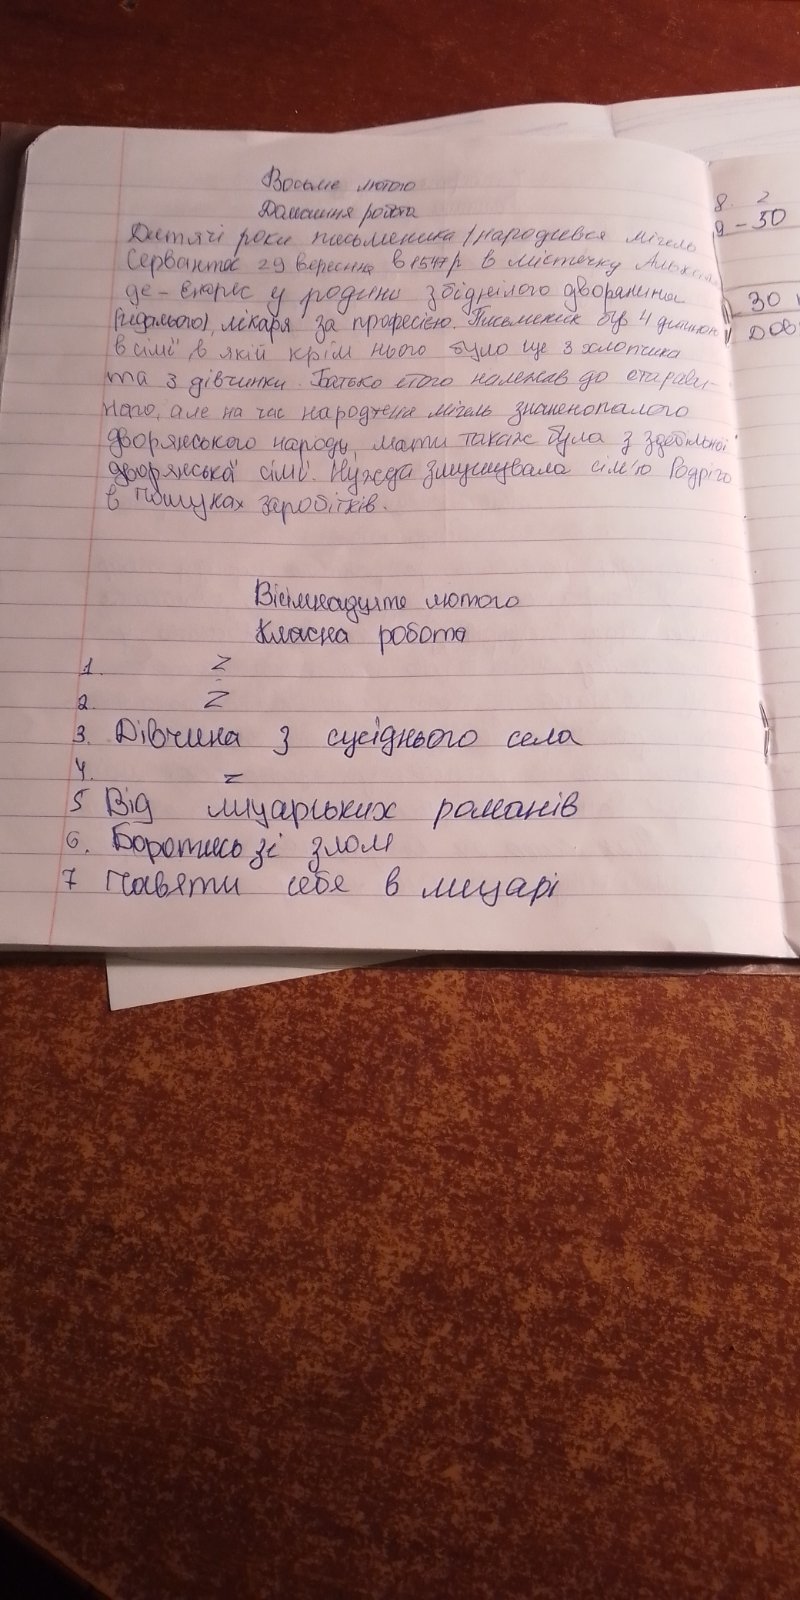 Восьме лютого
Домашня робота
Дитячі роки письменика народився Мігель
Сервантес 29 вересня в 1547р в містечку
де-Енарес у родини збіднілого дворянина
лікаря за професією. Письменик був 4
в сімї в якій крім нього було ще 3 хлопчика
та 3 дівчинки. Батько його належав до старови-
ного, але на час народжена мігель
дворянського народу, мати також була з
дворянської сімї. Нужда змушувала сім'ю Родріго
в пошуках заробітків.
Вісімнадцяте лютого
Класна робота
1. Z
2. Z
3. Дівчина з сусіднього села
4. Z
5 Від лицарських романів
6. Боротись зі злом
7 себя в лицарі
8. 2
9-30
30